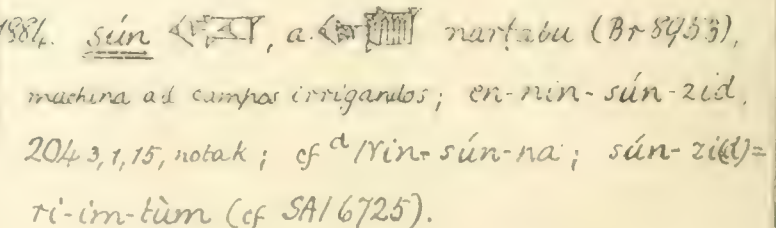 1984. sún, a. narṭabu (Br 8953),
machina ad campos irrigandos; en-nin-sún-zid,
204 3, 1, 15, notak; cf ᵈNin-sún-na; sún-zi(d)=
ri-im-tùm (cf SAI 6725).